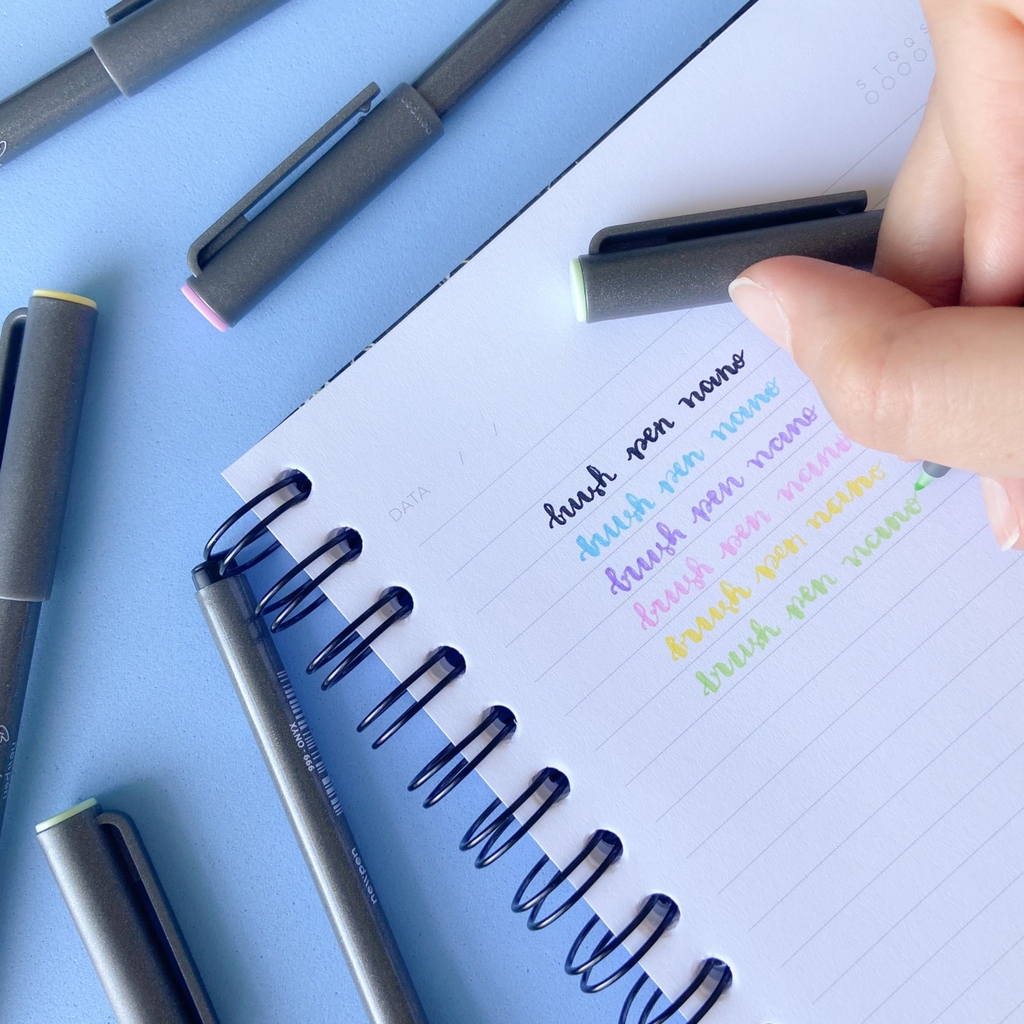 S T Q Q S
DATA
brush pen nano
brush pen nano
brush pen nano
brush pen nano
brush pen nano
brush pen nano
XANO - ONYX
666
newpen
newpen